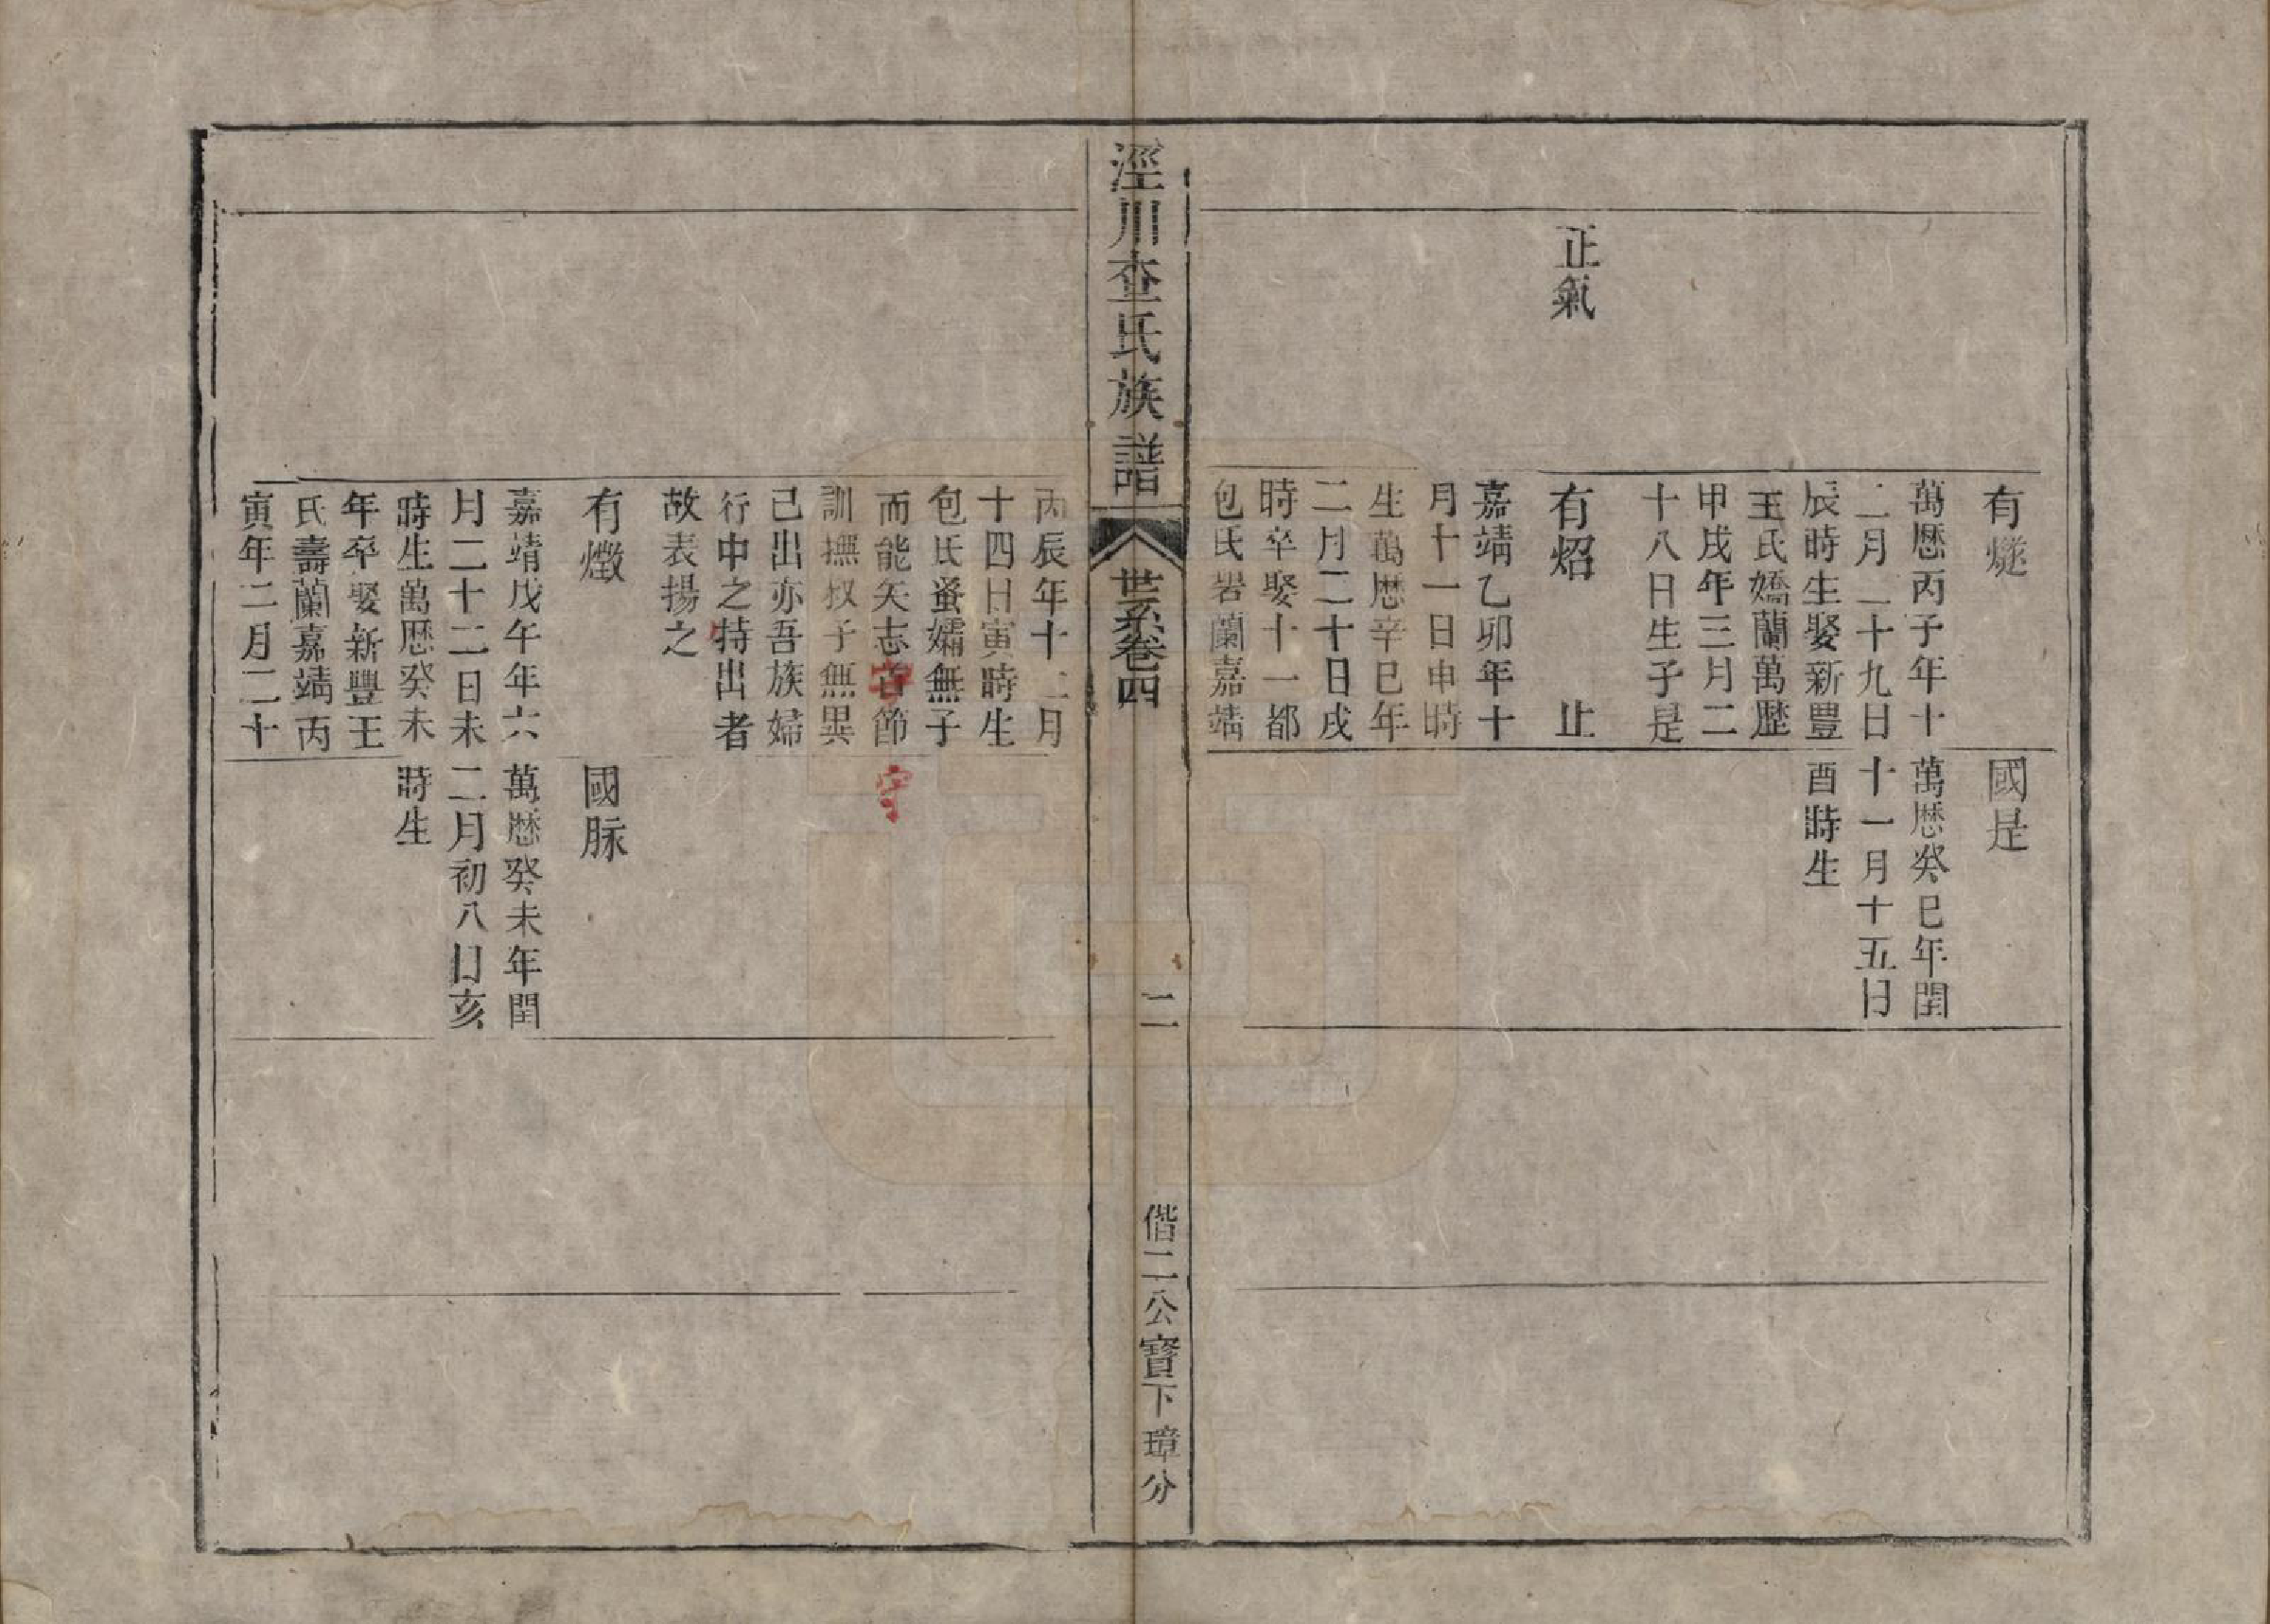 正氣
有燧
萬厯丙子年十
二月二十九日
辰時生娶新豐
王氏嬌蘭萬歷
甲戌年三月二
十八日生子是
有炤　　止
嘉靖乙卯年十
月十一日申時
生萬厯辛巳年
二月二十日戌
時卒娶十一都
包氏岩蘭嘉靖
國是
萬厯癸巳年閏
十一月十五日
酉時生
涇川查氏族譜
世系卷四
二
偕二公寶下璋分
丙辰年十二月
十四日寅時生
包氏蚤孀無子
而能矢志節
訓撫叔子無異
己出亦吾族婦
行中之特出者
故表揚之
有燉
嘉靖戊午年六
月二十二日未
時生萬厯癸未
年卒娶新豐王
氏壽蘭嘉靖丙
寅年二月二十
守
國脉
萬厯癸未年閏
二月初八日亥
時生